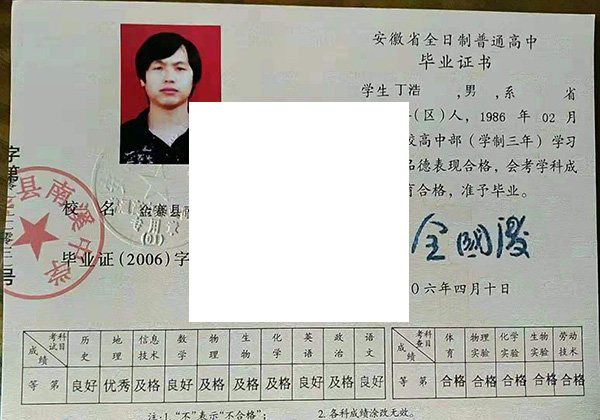 安徽省全日制普通高中
毕业证书
学生丁浩 ,男,系 省
(区)人,1986 年 02 月
校高中部(学制三年)学习
品德表现合格,会考学科成
合格,准予毕业。
校 名 金寨县
毕业证(2006)字
〇六年四月十日
县南溪中学
考试科目 历史 地理 信息技术 数学 物理 生物 化学 英语 政治 语文
成绩
等第 良好 优秀 及格 良好 及格 及格 及格 良好 良好 良好
考查科目 体育 物理实验 化学实验 生物实验 劳动技术
成绩
等第 合格 合格 合格 合格 合格
注:1.“不”表示“不合格”; 2.各科成绩涂改无效。